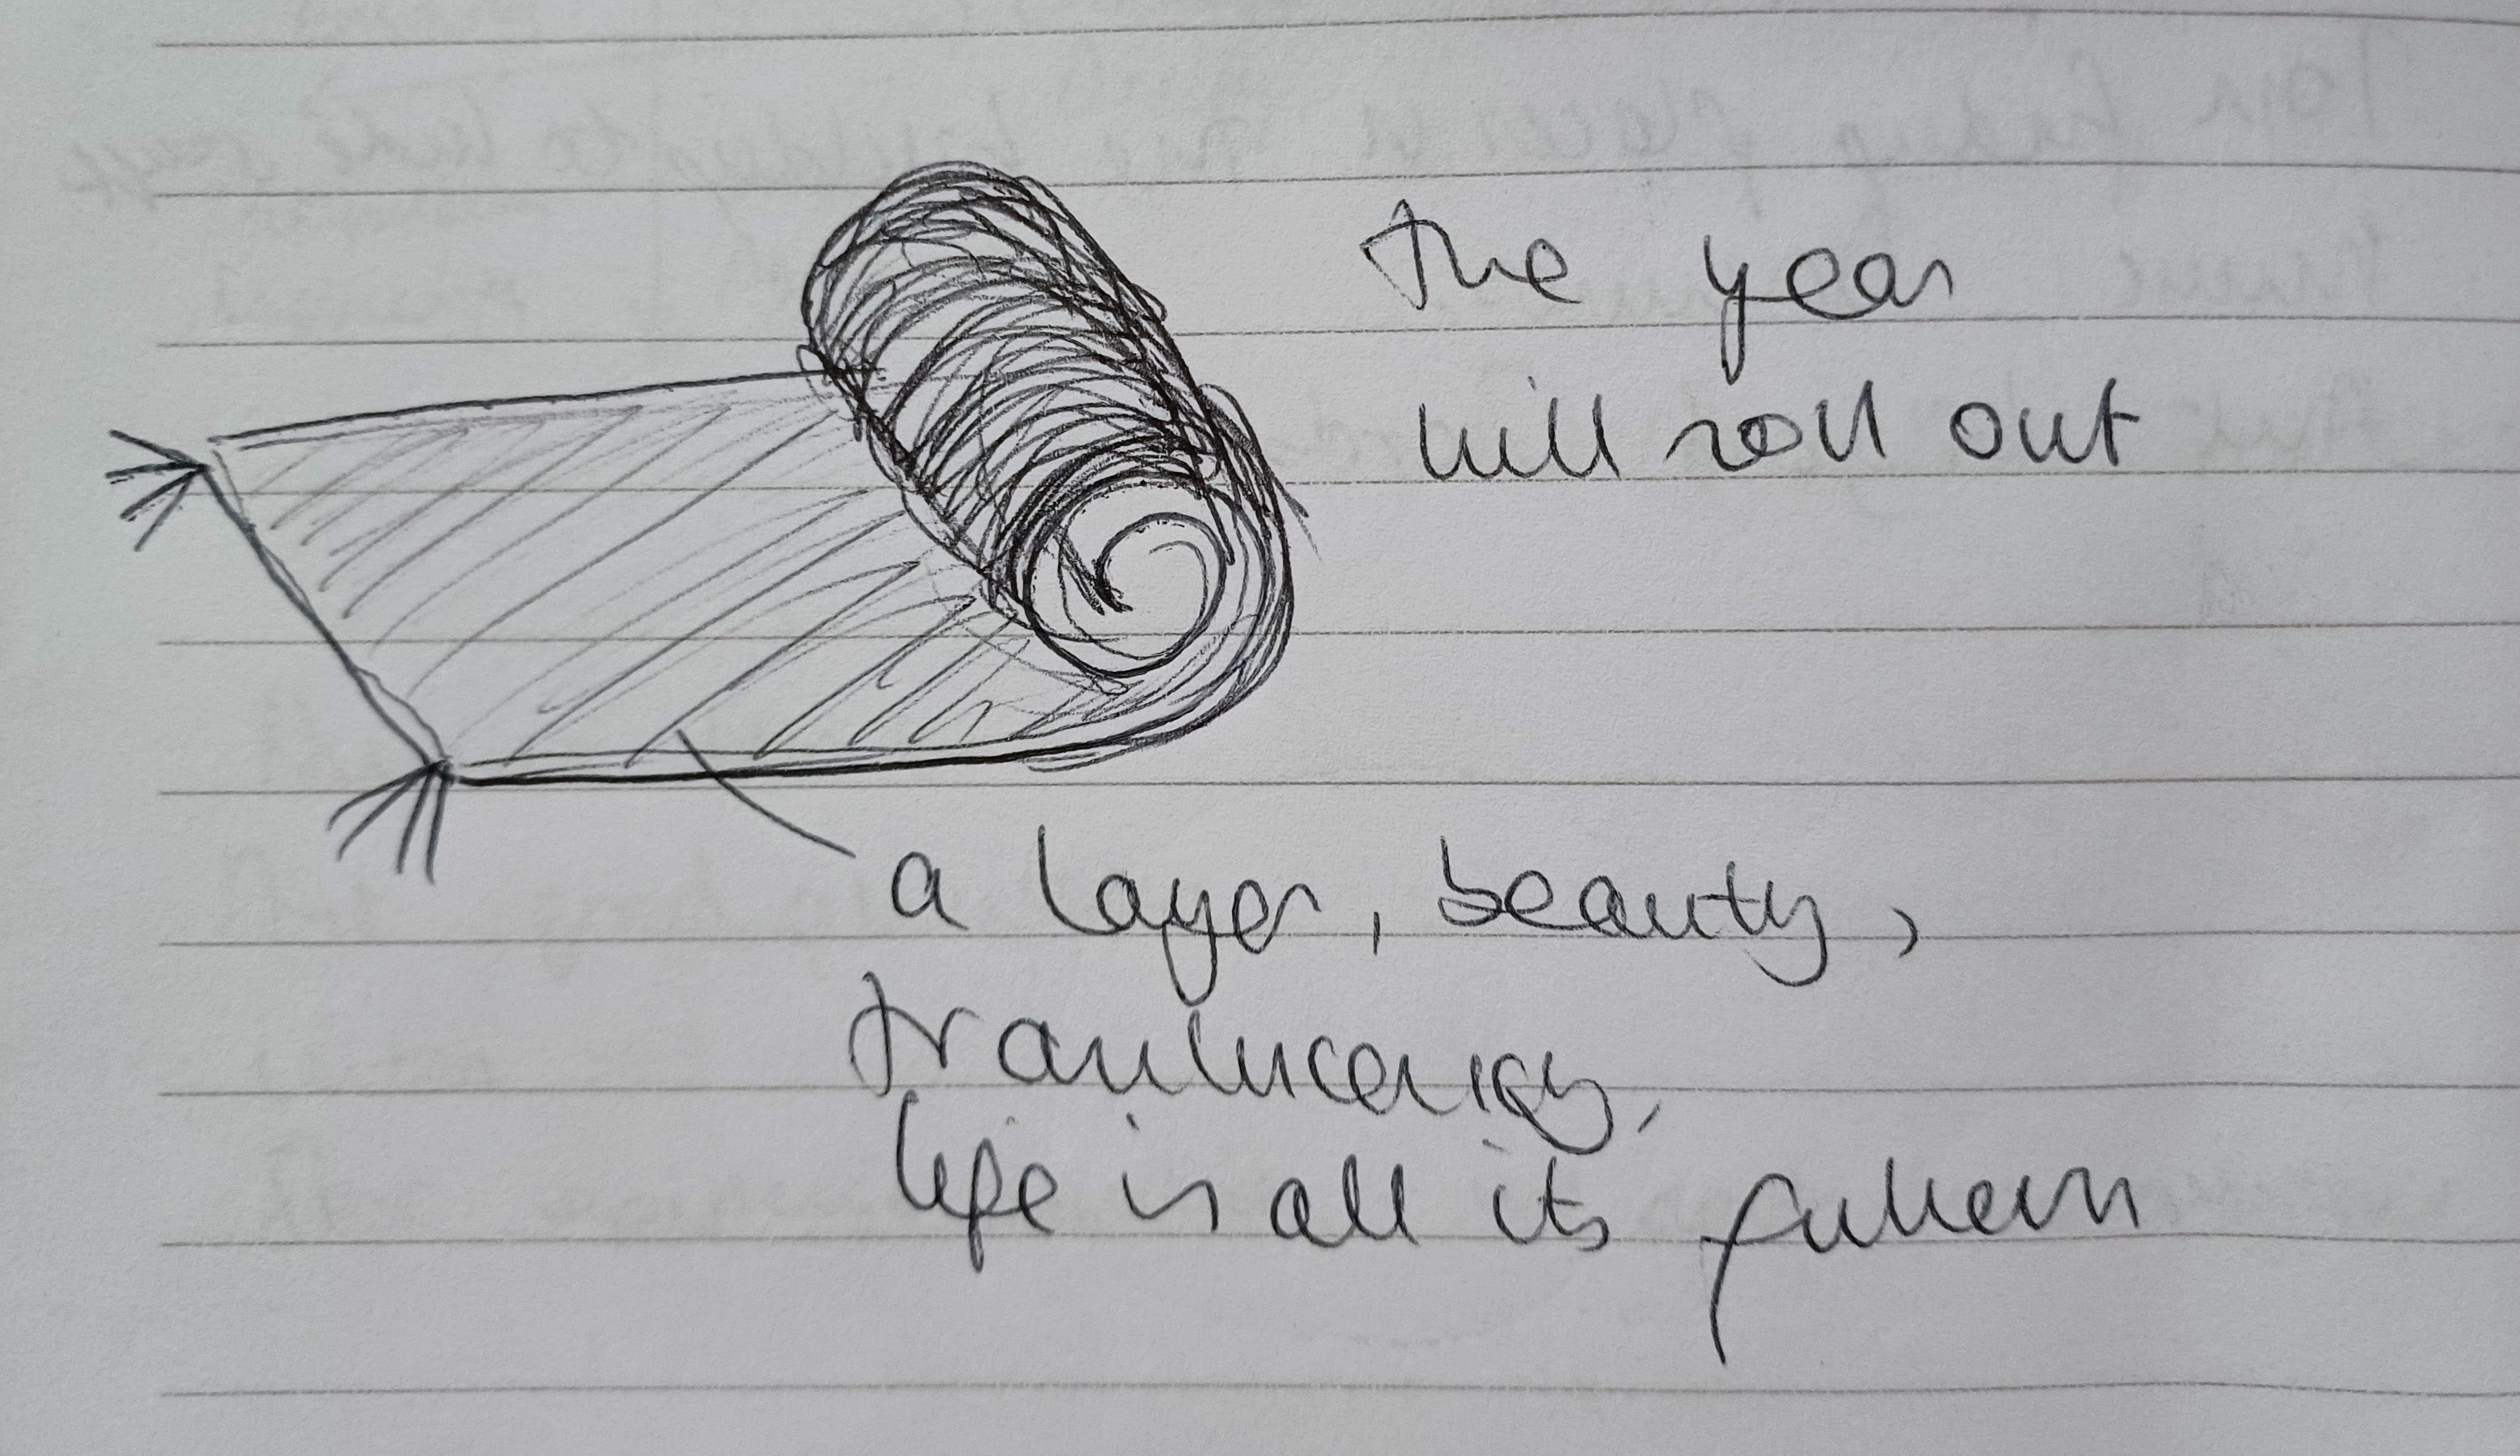 the year
will roll out
a layer, beauty,
translucency,
life in all its